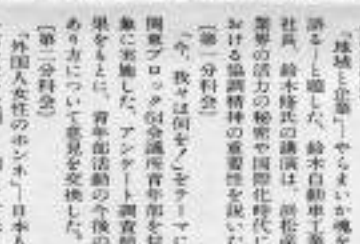 「地域と企業」―やらまいか魂を
語る―と題した、鈴木自動車工業
社長、鈴木修氏の講演は、浜松企
業界の活力の秘密や国際化時代に
おける協調精神の重要性を説いた
〔第一分科会〕
「今、我々は何を!」をテーマに
関東ブロック64会議所青年部を対
象に実施した、アンケート調査結
果をもとに、青年部活動の今後の
あり方について意見を交換した。
〔第二分科会〕
「外国人女性のホンネ」―日本も